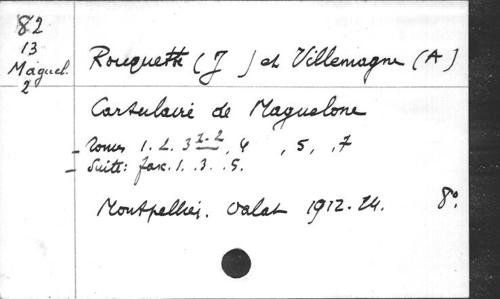 82
13
Maguel.
2
Rouquette (J ) et Villemagne (A)
Cartulaire de Maguelone
- Tomes 1. 2. 3 1-2, 4 , 5, , 7
- Suite: fasc. 1. .3. .5.
Montpellier. Valat 1912-24. 8º.